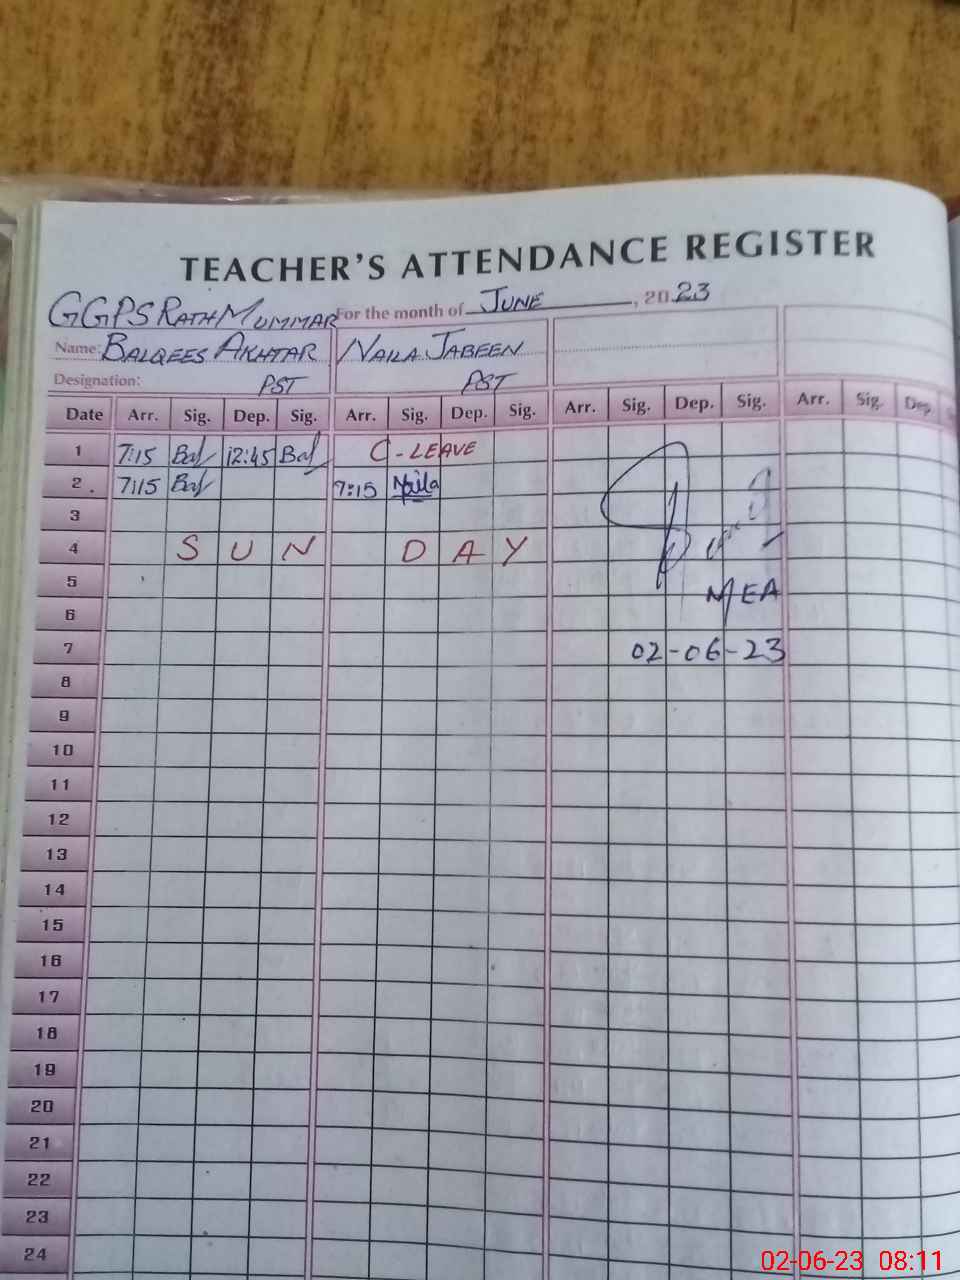 TEACHER'S ATTENDANCE REGISTER
GGPS RATH MUMMAR For the month of JUNE, 2023
Name: BALQEES AKHTAR NAILA JABEEN
Designation: PST PST
Date Arr. Sig. Dep. Sig. Arr. Sig. Dep. Sig. Arr. Sig. Dep. Sig. Arr. Sig. Dep.
1 7:15 Bal 12:45 Bal C-LEAVE
2 7:15 Bal 7:15 Naila
3
4 SUN DAY
5
6 MEA
7 02-06-23
8
9
10
11
12
13
14
15
16
17
18
19
20
21
22
23
24
02-06-23 08:11